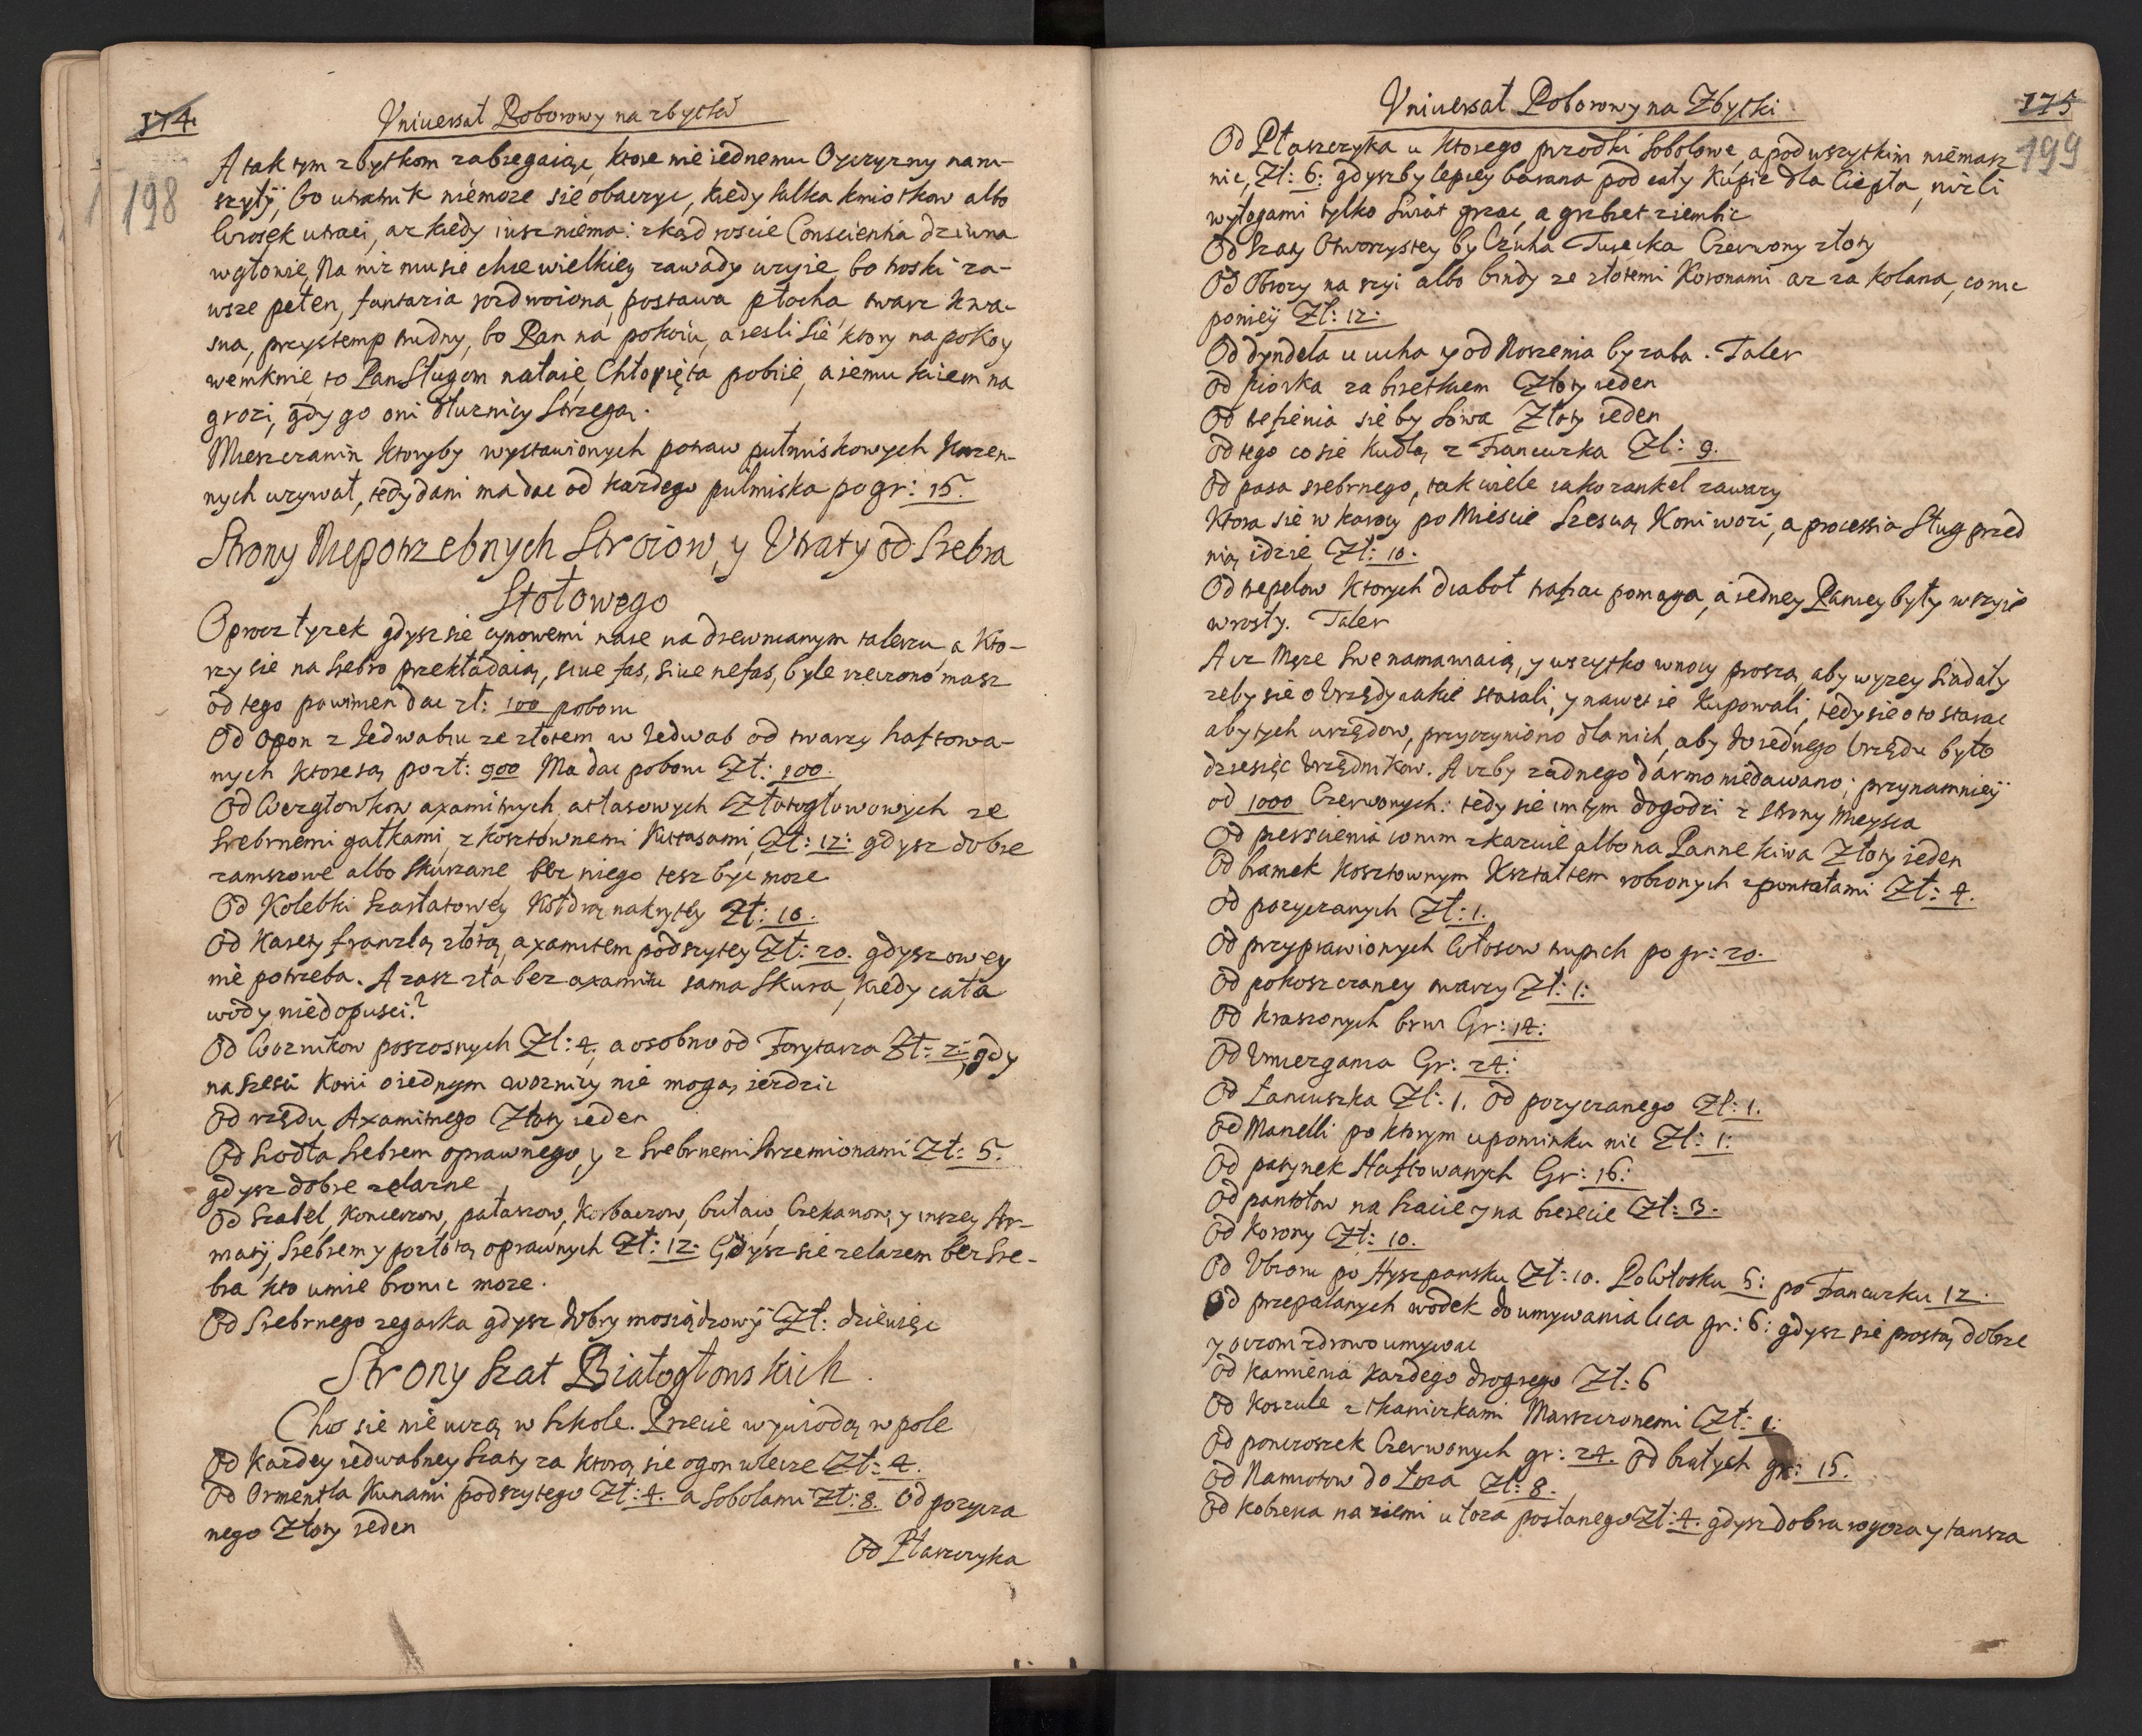 174.
Vniuersał Poborowy na zbytki
198
A tak tym zbytkom zabiegaiąc, ktore nie iednemu Oyczyzny naru-
szyły, bo utratnik niemoze się obaczyc, kiedy kilka kmiotkow albo
wiosek utraci, az kiedy iusz niema: zkąd roscie Conscientia dziwna
w głowie, Na niz mu się chce wielkiey zawady uzyie, bo troski za-
wsze pełen, fantazia rozdwoiona, postawa płocha, twarz kwa-
sna, przystemp trudny, bo Pan na pokoiu, a iesli się ktory na pokoy
wemknie, to Pan Sługom nałaie, Chłopięta pobiie, a iemu kiiem na
grozi, gdy go oni dłuznicy strzegą.
Mieszczanin ktoryby wystawionych potraw pułmiskowych kuzen-
nych uzywał, tedy dani ma dac od kazdego pulmiska po gr: 15.
Strony Niepotrzebnych Stroiow, y Utraty od Srebra
Stołowego
Oprocz łyzek gdysz się cynowemi naie na drewnianym talerzu, a kto-
rzy się na srebro przekładaią, siue fas, siue nefas, byle rzeczono masz
od tego powinien dac zł: 100 poboru
Od opon z Jedwabiu ze złotem w Jedwab od twarzy haftowa-
nych ktore są po zł: 900 Ma dac poboru Zł: 100.
Od Wezgłowkow axamitnych, atłasowych Złotogłowowych ze
srebrnemi gałkami, z kosztownemi Kutasami, Zł: 12: gdysz dobre
zamszowe albo skurzane bez niego tesz byc moze
Od Kolebki Szarłatowey, Kołdrą nakrytey Zł: 10.
Od Karety franzlą złotą, axamitem podszytey Zł: 20. gdysz owey
nie potrzeba. A zasz zła bez axamitu sama skura, kiedy cała
wody niedopusci?
Od Woznikow poszosnych Zł: 4; a osobno od Forytarza Zł: 2: gdy
na szesci koni o iednym woznicy nie mogą iezdzic
Od rzędu Axamitnego Złoty ieden
Od Siodła srebrem oprawnego, y z srebrnemi strzemionami Zł: 5.
gdysz dobre zelazne
Od Szabel, Koncerzow, pałaszow, Korbaczow, buław, Czekanow, y inszey Ar-
maty, srebrem y pozłotą oprawnych Zł: 12: Gdysz się zelazem bez sre-
bra kto umie bronic moze.
Od Srebrnego zegarka gdysz dobry mosiądzowy Zł: dziewięc
Strony szat Białogłowskich.
Choc się nie uczą w szkole. Przecie wywiodą w pole
Od kazdey iedwabney szaty za ktorą się ogon wlecze Zł: 4.
Od Ormentla Kunami podszytego Zł: 4. a Sobolami Zł: 8. Od pozycza
nego Złoty ieden
Od Ptaszczyka
Vniuersał Poborowy na Zbytki
175
199
Od Ptaszczyka u ktorego przodki Sobolowe, a pod wszytkim niemasz
nic, Zł: 6: gdyszby lepiey barana pod cały kupic dla Ciepła, nizli
wyłogami tylko swiat grzac, a grzbiet ziembic
Od szaty Otworzystey by Czuha Turecka Czerwony złoty
Od Obrozy na szyi albo bindy ze złotemi Koronami az za kolana, co nie
poniey Zł: 12:
Od dyndela u ucha y od Noszenia by zaba. Taler
Od piorka za biretkiem Złoty ieden
Od trefienia się by Sowa Złoty ieden
Od tego co się kudłą z Francuzka Zł: 9.
Od pasa srebrnego, tak wiele iako zankel zawazy
Ktora się w karocy po Miescie szescią Koni wozi, a processia Sług przed
nią idzie Zł: 10.
Od trepelow ktorych diaboł trafiac pomaga, a iedney Paniey były w szyie
wrosły. Taler
A iz Męze swe namawiaią, y wszytko w nocy proszą, aby wyzey siadały
zeby się o Vrzędy iakie starali, y nawet ie kupowali, tedy się o to starac
aby tych urzędow, przyczyniono dla nich, aby do iednego Vrzędu było
dziesięc Vrzędnikow. A izby zadnego darmo niedawano; przynamniey
od 1000 Czerwonych: tedy się im tym dogodzi z strony Mieysca
Od pierscienia co nim zkazuie albo na Panne kiwa Złoty ieden
Od bramek kosztownym Kształtem robionych z pontałami Zł: 4.
Od pozyczanych Zł: 1.
Od przyprawionych Włosow trupich po gr: 20.
Od pokoszczaney twarzy Zł: 1:
Od kraszonych brwi Gr: 14:
Od Vmizgania Gr: 24:
Od Łancuszka Zł: 1. Od pozyczanego Zł: 1.
Od Manelli po ktorym upominku nic Zł: 1:
Od patynek Haftowanych Gr: 16:
Od pantołow na szacie y na bierecie Zł: 3.
Od Korony Zł: 10.
Od Vbioru po Hyszpansku Zł: 10. Po Włosku 5: po Francuzku 12.
Od przepalanych wodek do umywania lica gr: 6: gdysz się prostą dobrze
y oczom zdrowo umywac
Od Kamienia kazdego drogiego Zł: 6
Od Koszule z tkaniczkami Marszczonemi Zł: 1:
Od ponczoszek Czerwonych gr: 24. Od białych gr: 15.
Od Namiotow do Łoza Zł: 8.
Od Kobierca na ziemi u łoza posłanego Zł: 4. gdysz dobra rogoza y tansza